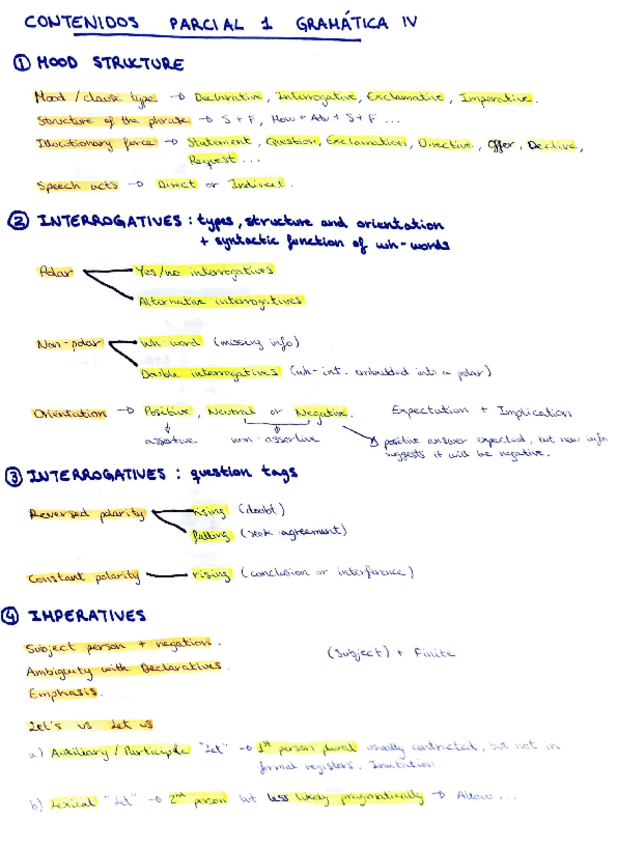 CONTENIDOS PARCIAL 1 GRAMÁTICA IV
① MOOD STRUCTURE
Mood / clause type → Declarative, Interrogative, Exclamative, Imperative.
Structure of the phrase → S + F, How + Adv + S + F ...
Illocutionary force → Statement, Question, Exclamation, Directive, Offer, Decline,
Request ...
Speech acts → Direct or Indirect.
② INTERROGATIVES: types, structure and orientation
+ syntactic function of wh-words
Polar
Yes/no interrogatives
Alternative interrogatives
Non-polar
Wh-word (missing info)
Double interrogatives (wh-int. embedded into a polar)
Orientation → Positive, Neutral or Negative. Expectation + Implication
assertive non-assertive positive answer expected, but new info
suggests it will be negative.
③ INTERROGATIVES: question tags
Reversed polarity
rising (doubt)
falling (seek agreement)
Constant polarity
rising (conclusion or interference)
④ IMPERATIVES
Subject person + negation. (Subject) + Finite
Ambiguity with Declaratives.
Emphasis.
Let's vs Let us
a) Auxiliary / Participle "Let" → 1st person plural usually contracted, but not in
formal registers. Invitation.
b) Lexical "Let" → 2nd person but less likely pragmatically → Allow ...